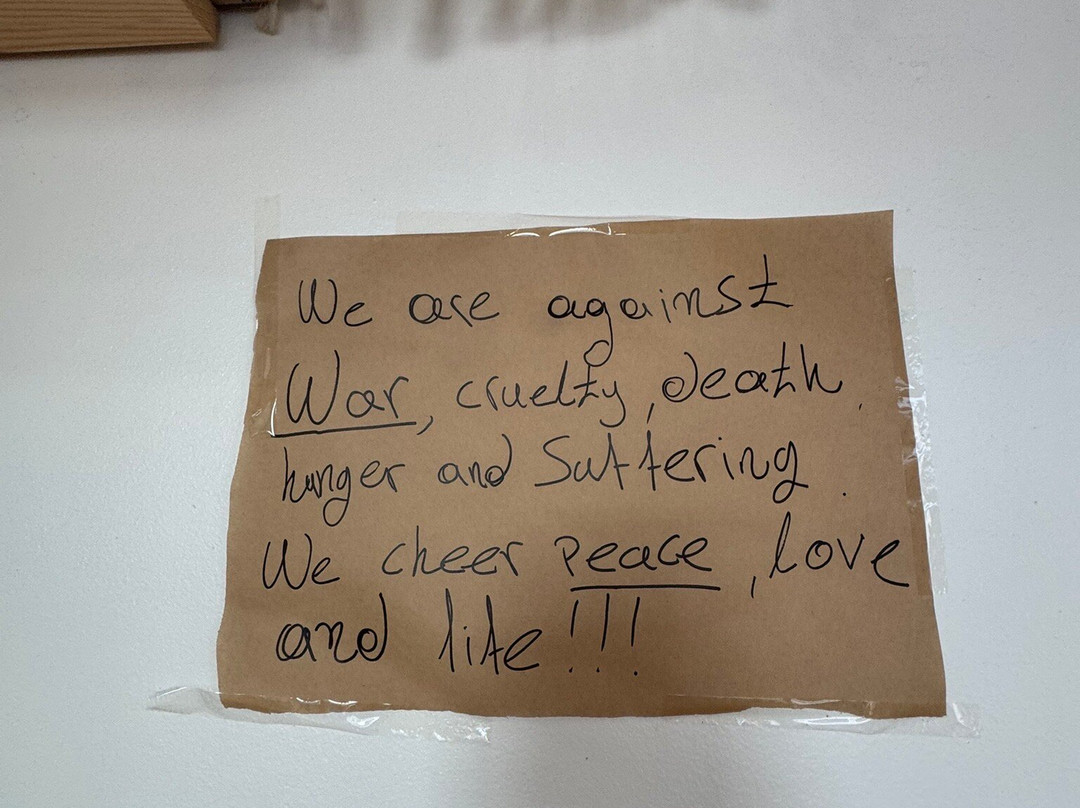 We are against
War, cruelty, death,
hunger and Suffering.
We cheer peace, love
and life!!!